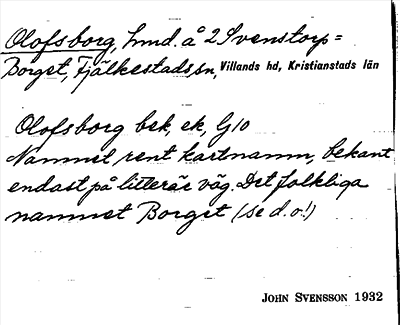 Olofsborg, hmd. å 2 Svenstorp=
Borget, Fjälkestads sn, Villands hd, Kristianstads län
Olofsborg bek, ek, G10
Namnet rent kartnamn, bekant
endast på litterär väg. Det folkliga
namnet Borget (se d.o!)
JOHN SVENSSON 1932